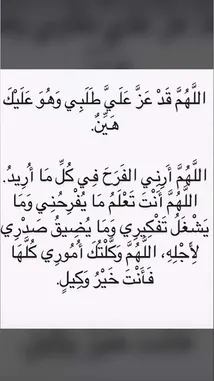 اللَّهُمَّ قَدْ عَزَّ عَلَيَّ طَلَبِي وَهُوَ عَلَيْكَ
هَيِّنٌ.
اللَّهُمَّ أَرِنِي الفَرَحَ فِي كُلِّ مَا أُرِيدُ.
اللَّهُمَّ أَنْتَ تَعْلَمُ مَا يُفْرِحُنِي وَمَا
يَشْغَلُ تَفْكِيرِي وَمَا يُضِيقُ صَدْرِي
لِأَجْلِهِ، اللَّهُمَّ وَكَّلْتُكَ أُمُورِي كُلَّهَا
فَأَنْتَ خَيْرُ وَكِيلٍ.